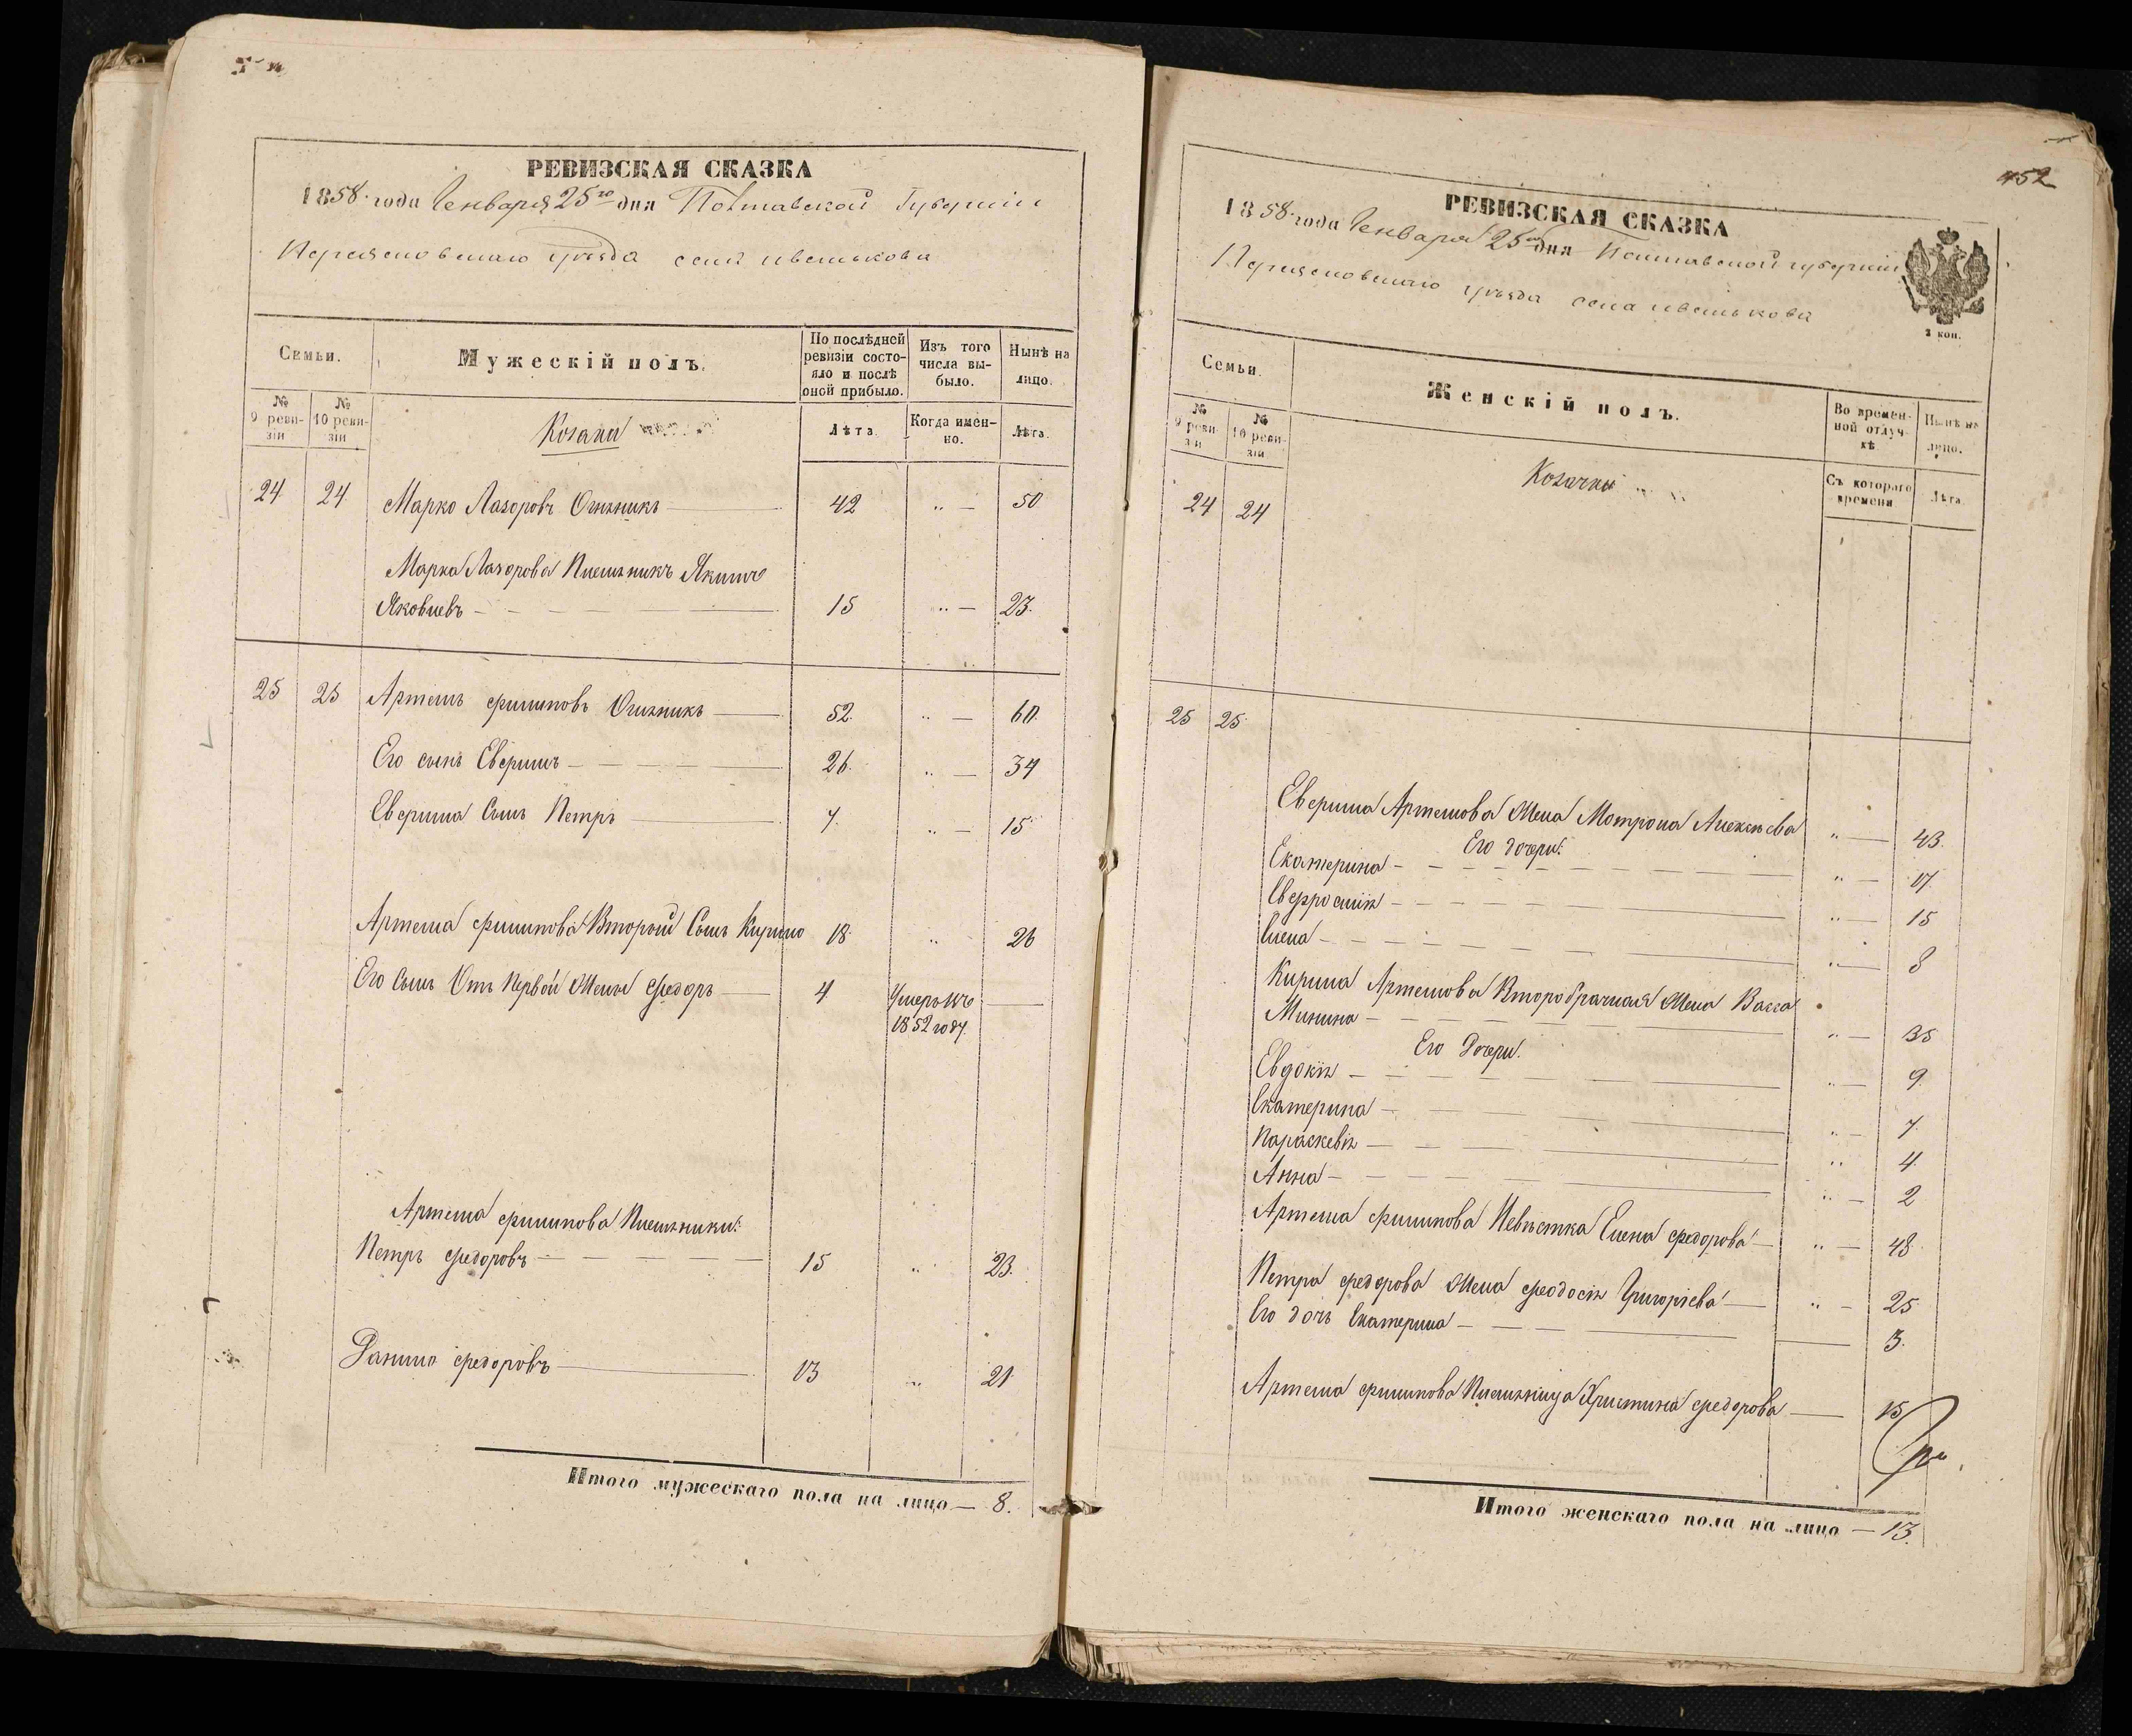 РЕВИЗСКАЯ СКАЗКА
1858 года Генваря 25го дня Полтавской Губерніи
Переясловскаго уѣзда села
Семьи.
Мужескій полъ.
По послѣдней ревизіи состояло и послѣ оной прибыло.
Изъ того числа выбыло.
Нынѣ на лицо.
№ 9 ревизіи
№ 10 ревизіи
Козаки
Лѣта.
Когда именно.
Лѣта.
24 24 Марко Лазоровъ 42 „ — 50
Марка Лазорова Племѣникъ Якимъ
Яковлевъ — 15 „ — 23.
25 25 Артемъ Филиповъ 52. „ — 60.
Его сынъ Ефримъ — 26. „ — 34
Ефрима Сынъ Петръ — 7. „ — 15
Артема Филипова Вторый Сынъ Кирило 18. „ 26
Его Сынъ Отъ Первой Жены Федоръ — 4 Умеръ въ —
1852 году.
Артема Филипова Племѣники:
Петръ Федоровъ — 15 „ 23.
Данило Федоровъ — 13 „ 21
Итого мужескаго пола на лицо — 8.
452
РЕВИЗСКАЯ СКАЗКА
1858 года Генваря 25го дня Полтавской губерніи
Переясловскаго уѣзда села
2 коп.
Семьи.
Женскій полъ.
Во временной отлучкѣ.
Нынѣ на лицо.
№ 9 ревизіи
№ 10 ревизіи
Козачки
Съ котораго времени
Лѣта.
24 24
25 25.
Ефрима Артемова Жена Мотрона Алексѣева „ — 43.
Его дочери:
Екатерина — „ — 17
Ефросиня — „ — 15
Елена — „ — 8
Кирила Артемова Второбрачная Жена Васса
Минина — „ — 35
Его Дочери:
Евдокія — „ — 9.
Екатерина — „ — 7.
Параскевія — „ 4.
Анна — „ — 2
Артема Филипова Невѣстка Елена Федорова — „ — 48.
Петра Федорова Жена Феодосія Григоріева — „ — 25
Его дочь Екатерина — 3.
Артема Филипова Племѣница Христина Федорова — 15
Итого женскаго пола на лицо — 13.